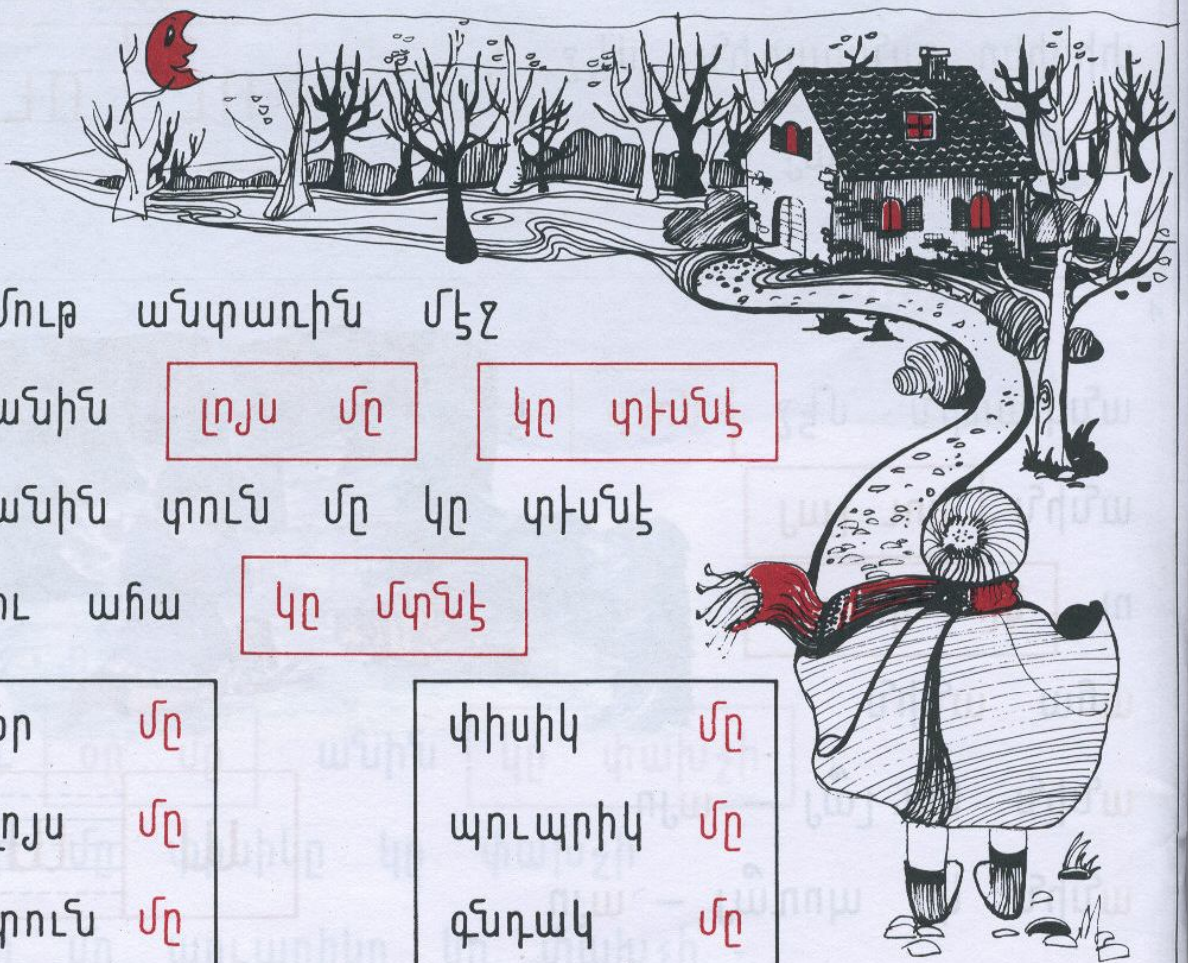 մութ անտառին մէջ
անին լոյս մը կը տեսնէ
անին տուն մը կը տեսնէ
ու ահա կը մտնէ
օր մը
լոյս մը
տուն մը
փիսիկ մը
պուպրիկ մը
գնդակ մը